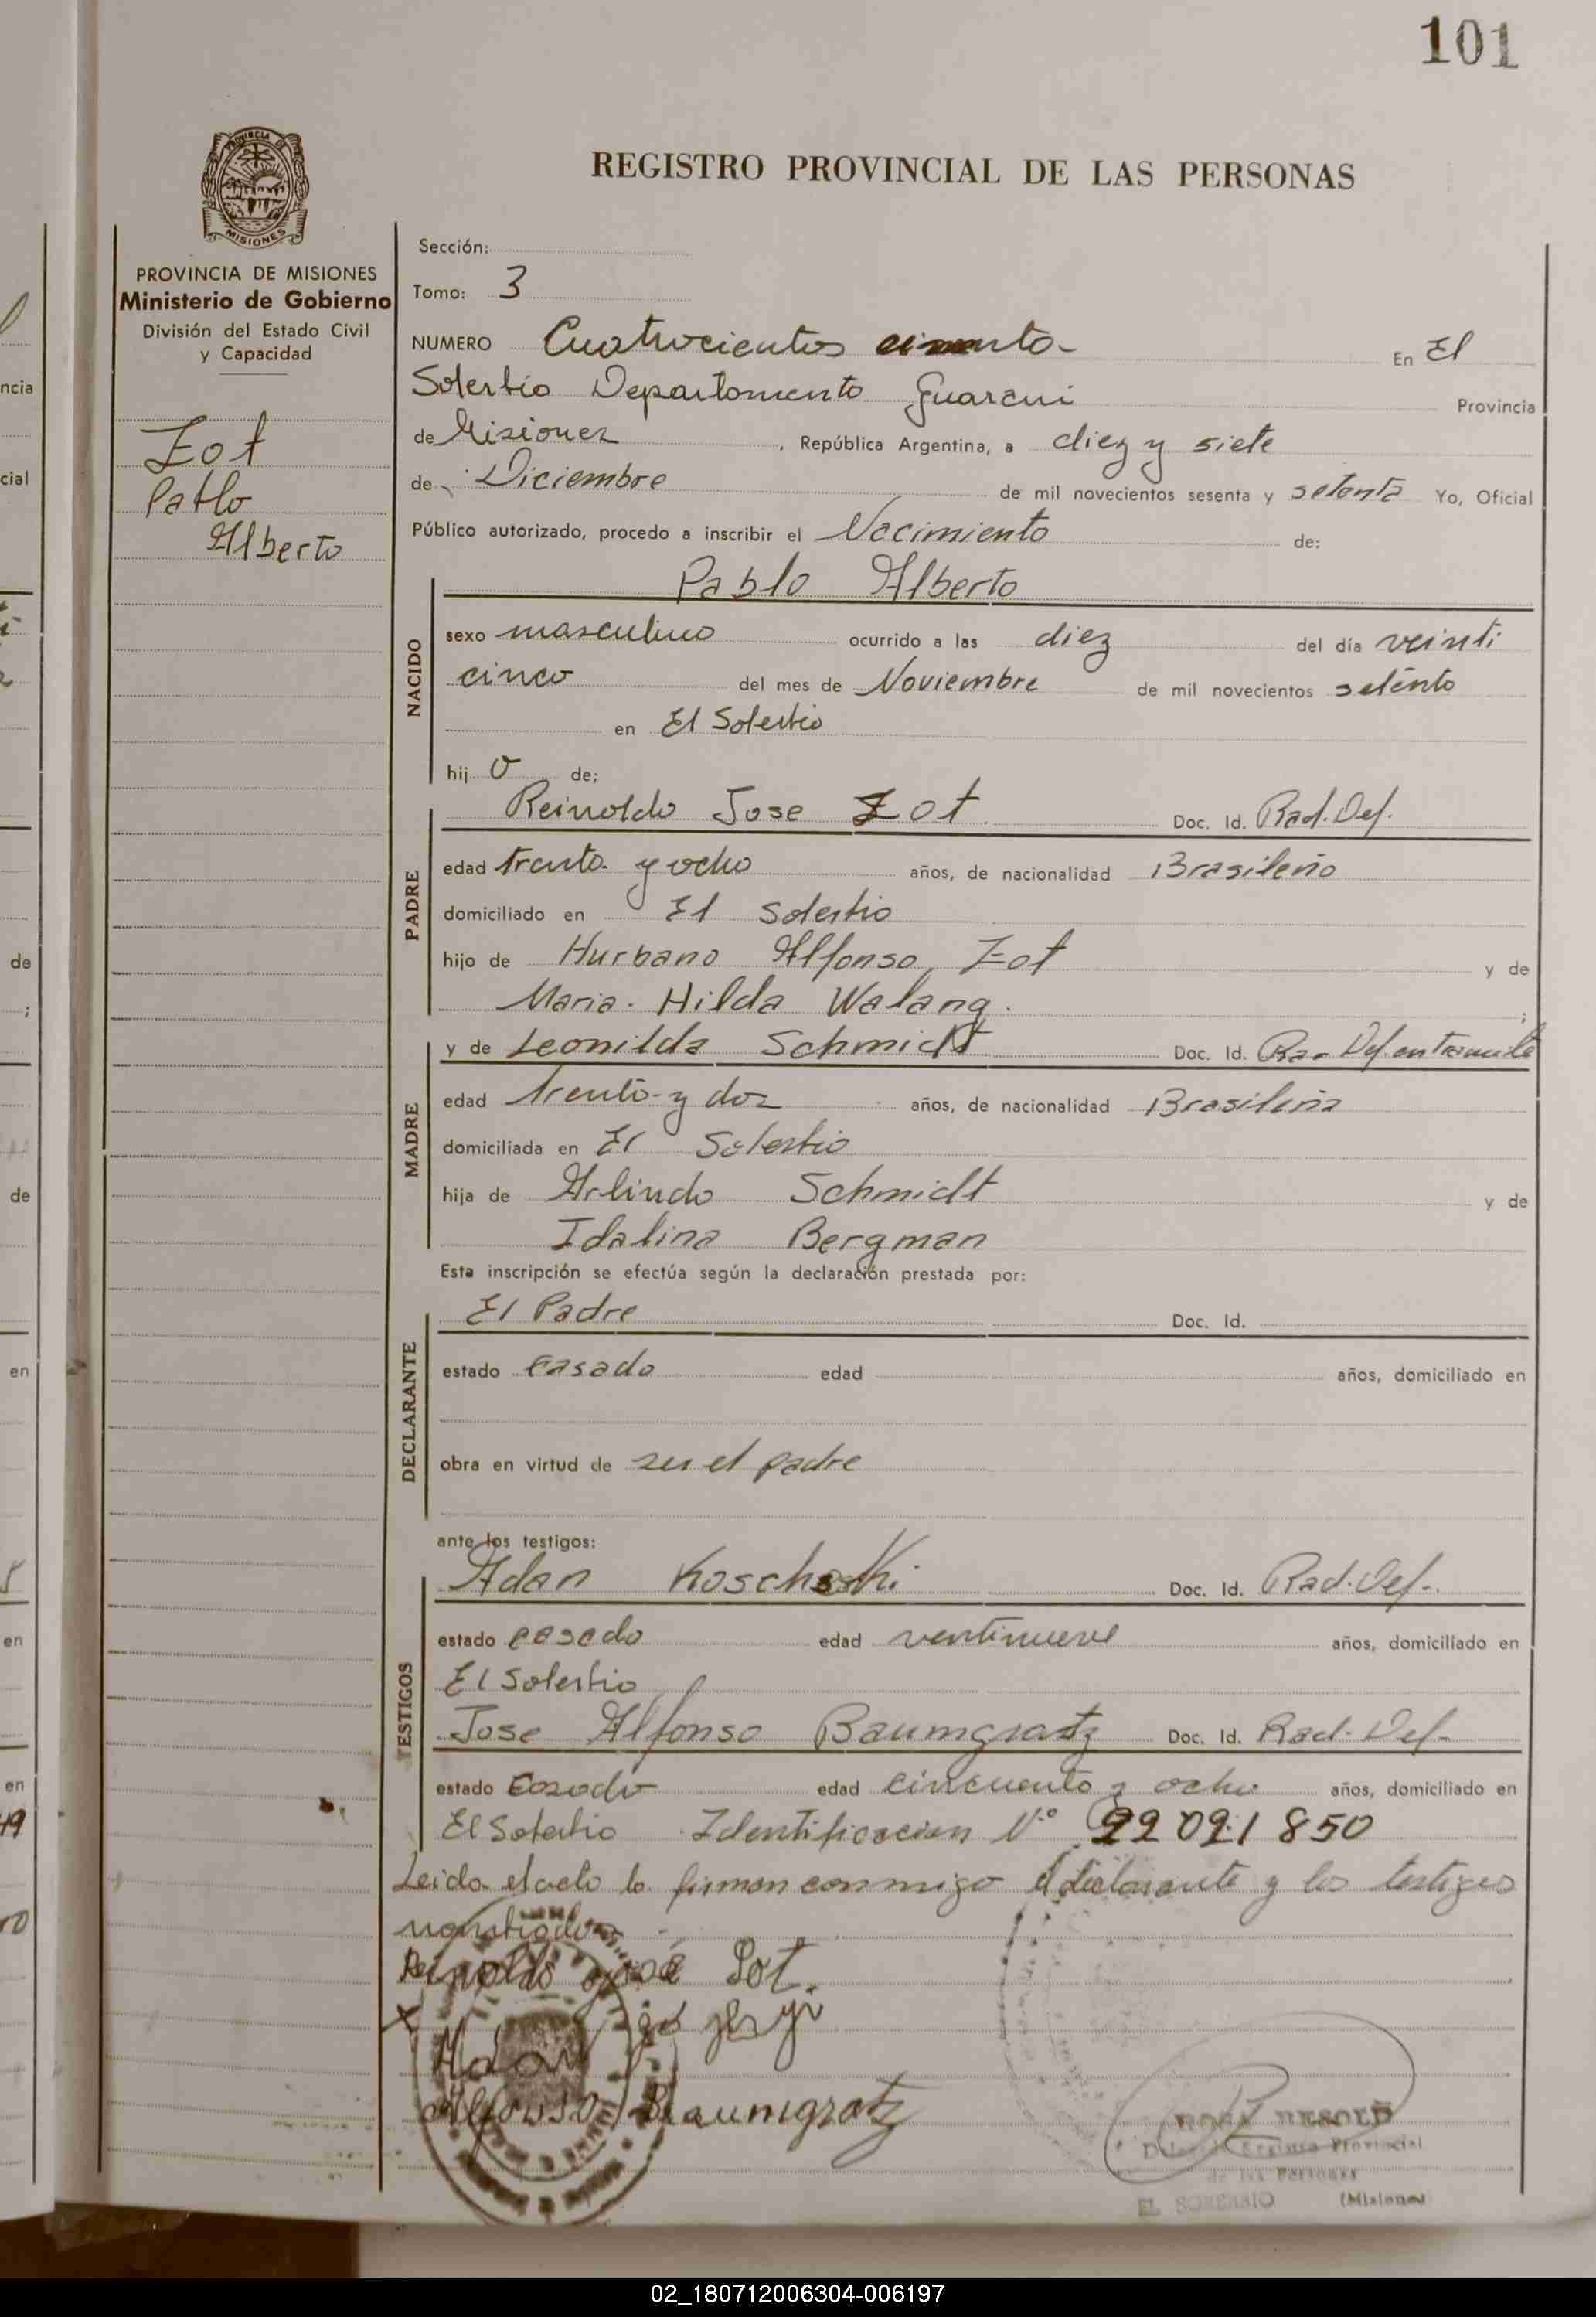 101
PROVINCIA DE
MISIONES
REGISTRO PROVINCIAL DE LAS PERSONAS
PROVINCIA DE MISIONES
Ministerio de Gobierno
División del Estado Civil
y Capacidad
Zot
Pablo
Alberto
Sección:
Tomo: 3
NUMERO Cuatrocientos En El
Soberbio Departamento Guarani Provincia
de Misiones , República Argentina, a diez y siete
de Diciembre de mil novecientos sesenta y setenta Yo, Oficial
Público autorizado, procedo a inscribir el Nacimiento de:
Pablo Alberto
NACIDO
sexo masculino ocurrido a las diez del día veinti
cinco del mes de Noviembre de mil novecientos setenta
en El Soberbio
hij o de;
PADRE
Reinoldo Jose Zot Doc. Id. Rad. Def.
edad trenta y ocho años, de nacionalidad Brasileño
domiciliado en El Soberbio
hijo de Hurbano Alfonso Zot y de
Maria Hilda Walang. ;
MADRE
y de Leonilda Schmidt Doc. Id. Ra- Def. en tramite
edad trenta y dos años, de nacionalidad Brasileña
domiciliada en El Soberbio
hija de Arlindo Schmidt y de
Idalina Bergman
Esta inscripción se efectúa según la declaración prestada por:
DECLARANTE
El Padre Doc. Id.
estado casado edad años, domiciliado en
obra en virtud de ser el padre
ante los testigos:
TESTIGOS
Adan Doc. Id. Rad. Def-.
estado casado edad ventinueve años, domiciliado en
El Soberbio
Jose Alfonso Baumgratz Doc. Id. Rad. Def-
estado Casado edad cincuenta y ocho años, domiciliado en
El Soberbio Identificacion N° 22 021 850
Leida el acta la firman conmigo el declarante y los testigos
Reinoldo José Sot.
X
Adan
Alfonso Baumgratz
Registro Provincial
de las Personas
EL SOBERBIO (Misiones)
ncia
cial
de
;
de
en
en
en
49
02_180712006304-006197